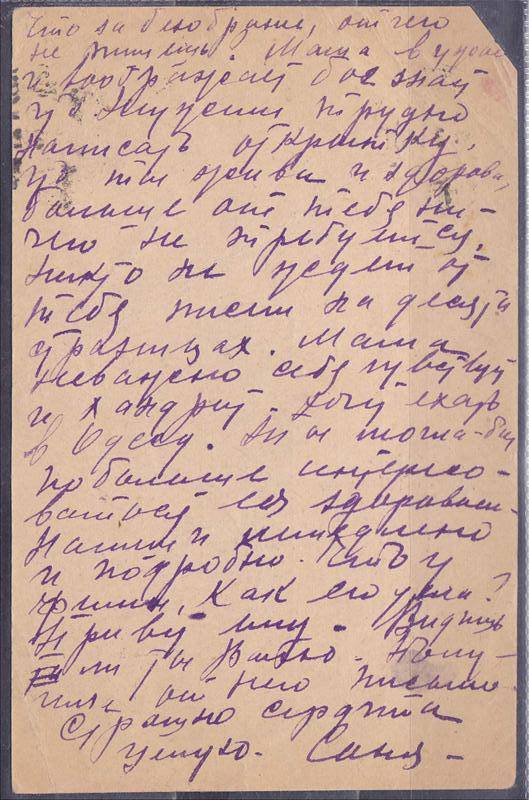 Что за безобразие, отчего
не пишешь. Мама в ужасе
и воображает бог знает
что. Неужели трудно
написать открытку,
что ты жива и здорова,
больше от тебя ни-
чего не требуется,
никто не ждет от
тебя писем на десяти
страницах. Мама
неважно себя чувствует
и хандрит. Хочу ехать
в Одессу. Ты могла бы
побольше интересо-
ваться её здоровьем.
Напиши немедленно
и подробно. Есть у
Фимы, как его дела?
Привет ему. Видишь
ли ты Валю. Полу-
чила от него письмо.
Страшно сердита
целую. Саня -